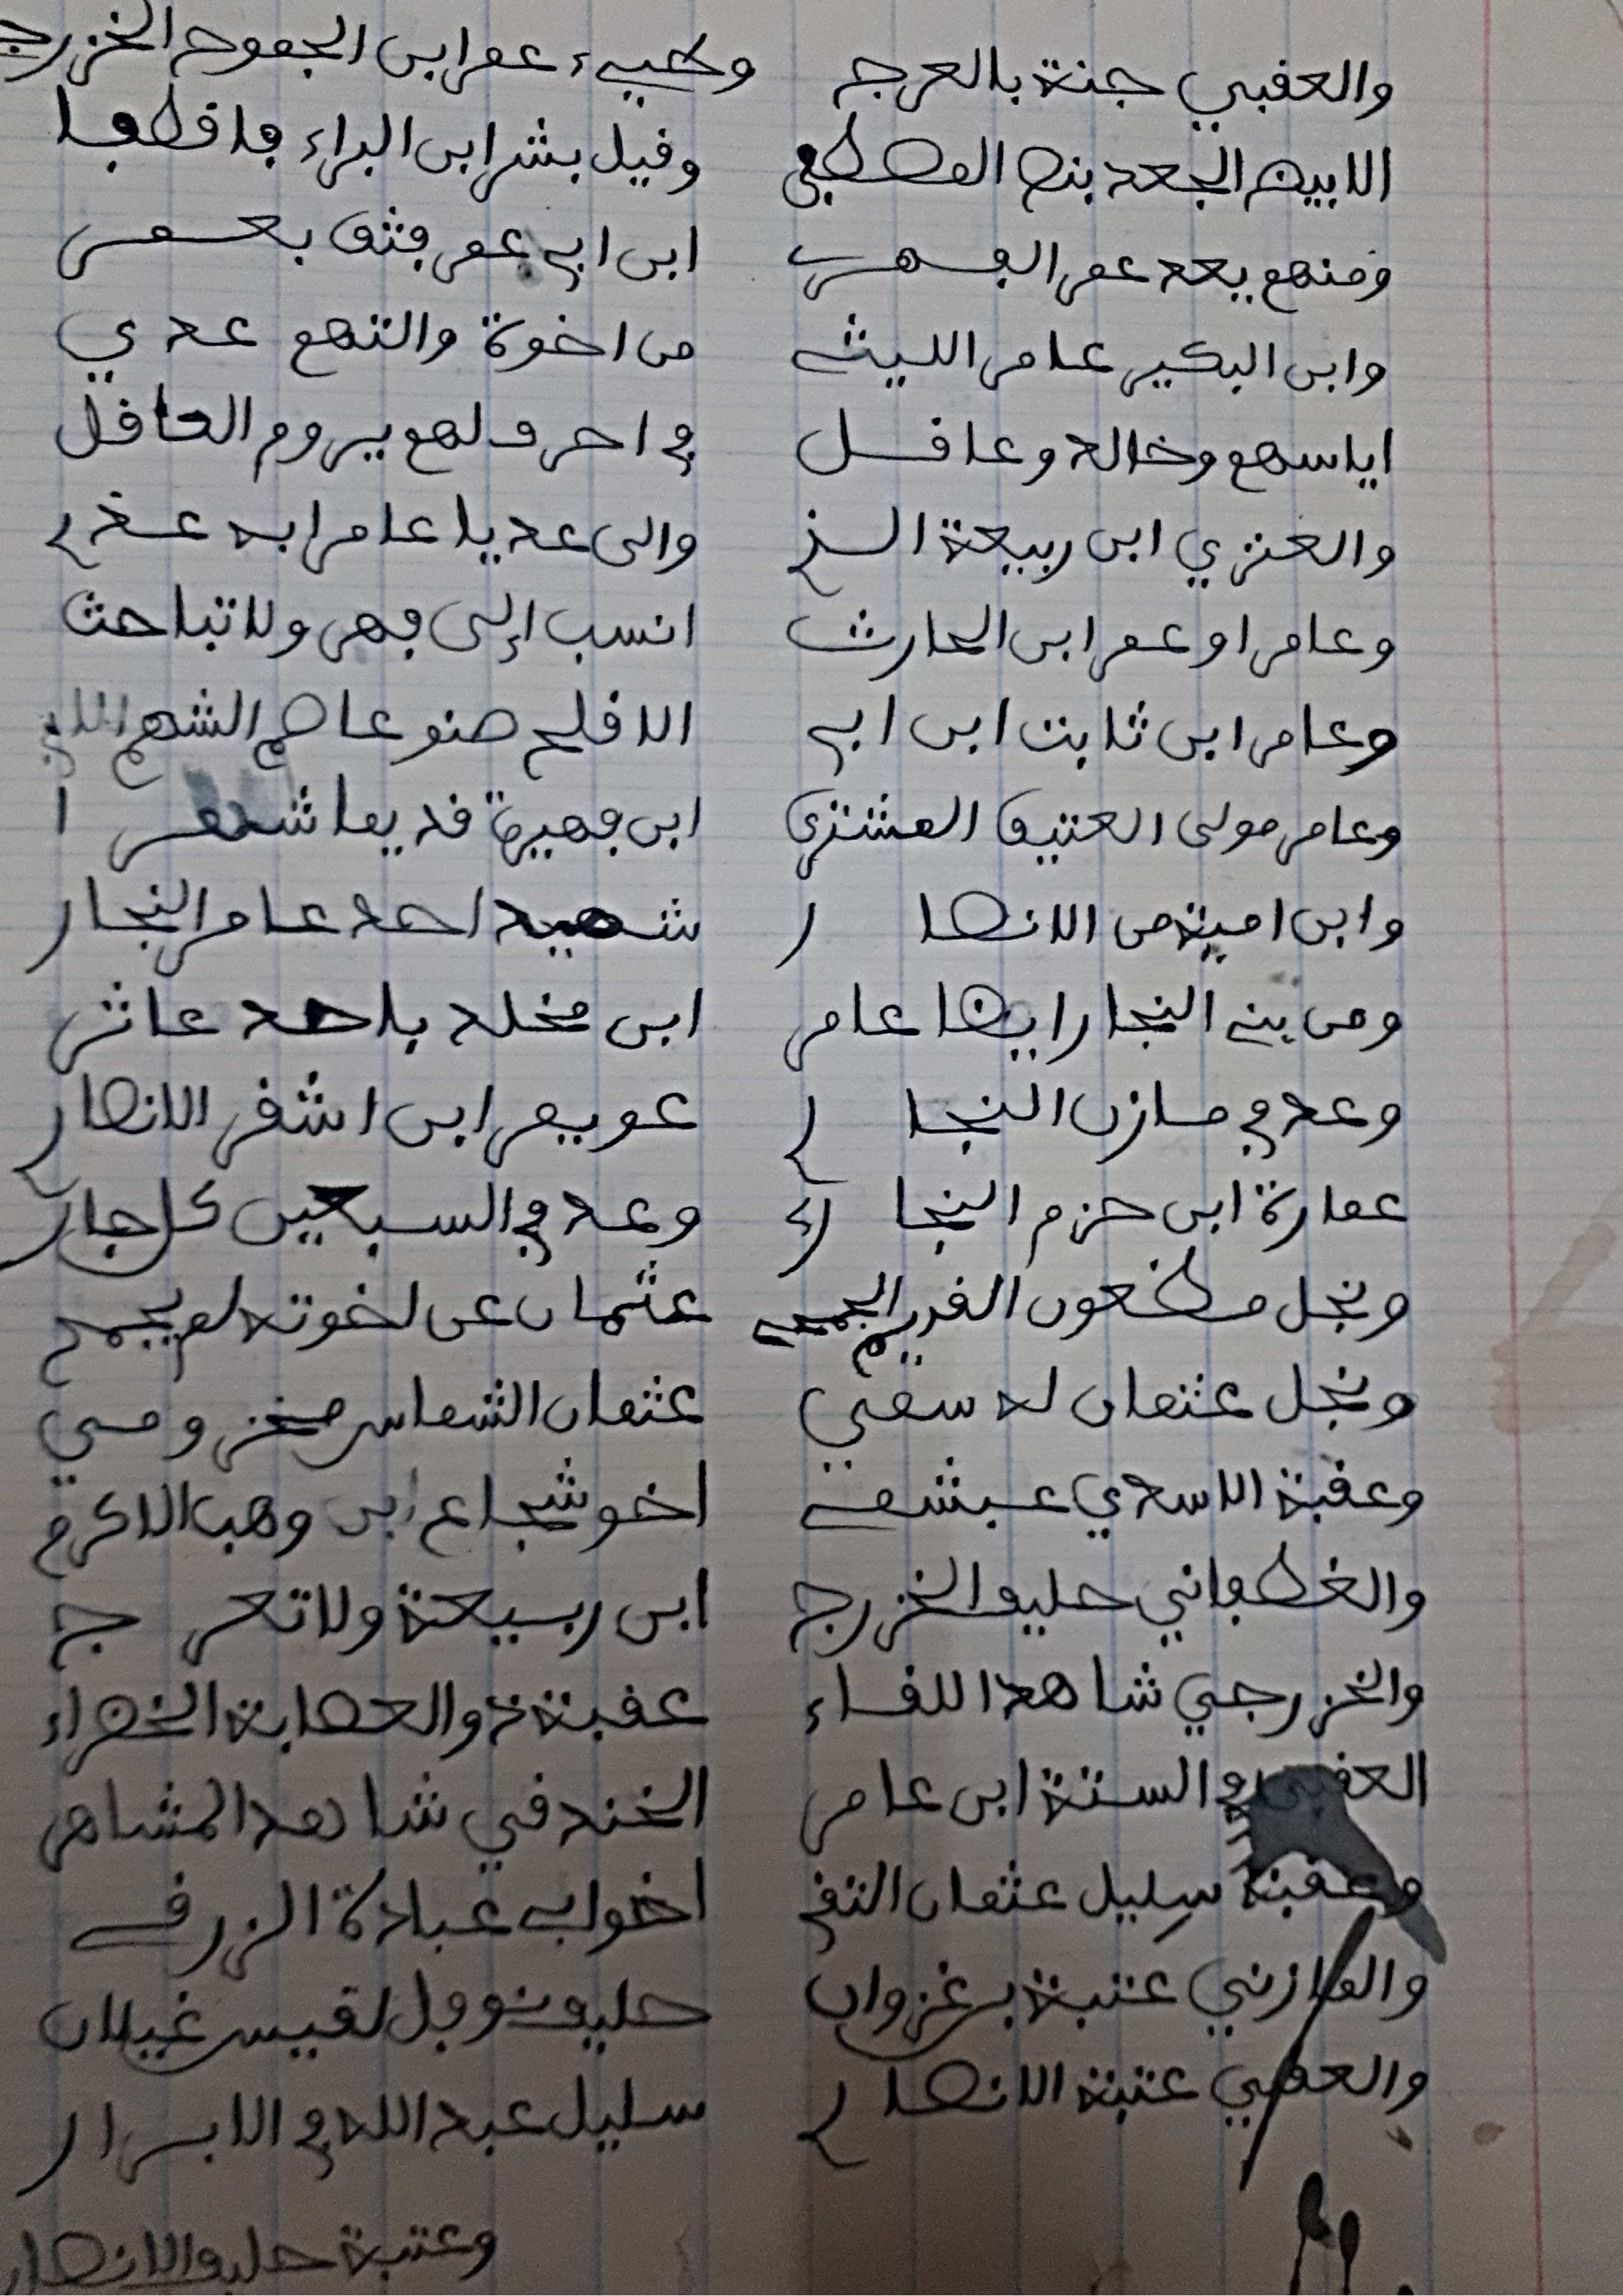 والعقبي جنة بالعرج ونحيىء عمر ابن الجموح الخزرج
الابيض الجعد بنص المصطفى وقيل بشر ابن البراء فاقطفا
ومنهم يعد عمر الفهر ابن ابي عمر فثق بعمر
وابن البكير عامر الليثي من اخوة والتهم عدي
اياسهم وخالد وعاقل في احرف لهم يروم العاقل
والعنزي ابن ربيعة السذ والى عديا عامرا به عذ
وعامرا وعمر ابن الحارث انسب إلى فهر ولا تباحث
وعامر ابن ثابت ابن ابي الاقلح صنو عاصم الشهم
وعامر مولى العتيق المشترى ابن فهيرة قديما شمرا
وابن امية من الانصار شهيد احد عامر النجار
ومن بني النجار ايضا عامر ابن مخلد باحد عاثر
وعد في مازن النجار عويمر ابن اشقر الانصار
عمارة ابن حزم النجار وعد في السبعين كل جار
ونجل مظعون القريم الجمحي عثمان عن اخوته لم يجمح
ونجل عثمان له سمي عثمان الشماس مخزومي
وعقبة الاسدي عبشمي اخو شجاع ابن وهب الاكرم
والغطفاني حليف الخزرج ابن ربيعة ولا تعرج
والخزرجي شاهد اللقاء عقبة ذو العصابة الخضراء
العقبي في الستة ابن عامر الخندقي شاهد المشاهر
وعقبة سليل عثمان التقي اخو ابي عبادة الزرقي
والمازني عتبة بن غزوان حليف نوفل لقيس غيلان
والعقبي عتبة الانصار سليل عبد الله في الابرار
وعتبة حليف الانصار